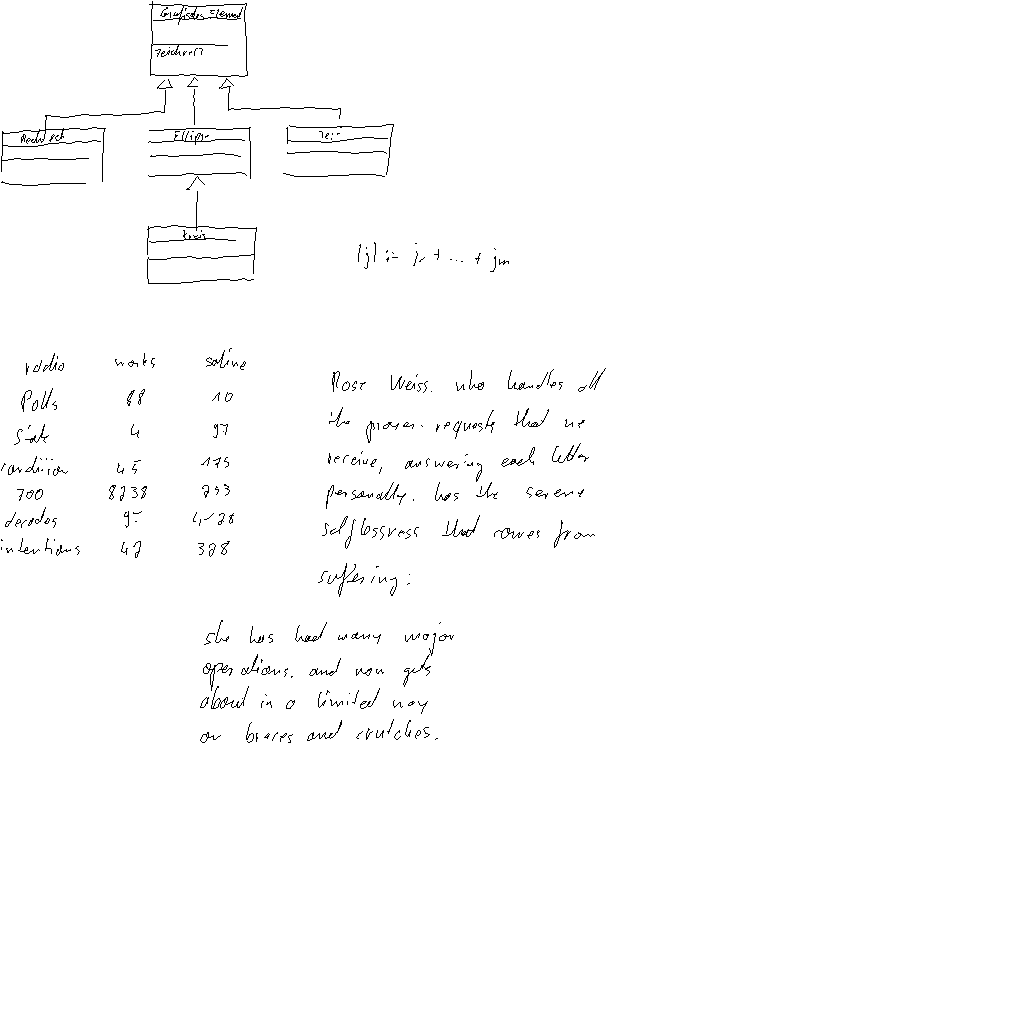 Grafisches Element
zeichne()
Rechteck Ellipse
Kreis
|j| := j1 + ... + jm
radio works saline
Polls 88 10
State 4 97
condition 45 175
700 8238 293
decades
intentions 42 328
Rose Weiss, who handles all
the prayer-requests that we
receive, answering each letter
personally, has the serene
selflessness that comes from
suffering:
she has had many major
operations, and now gets
about in a limited way
on braces and crutches.